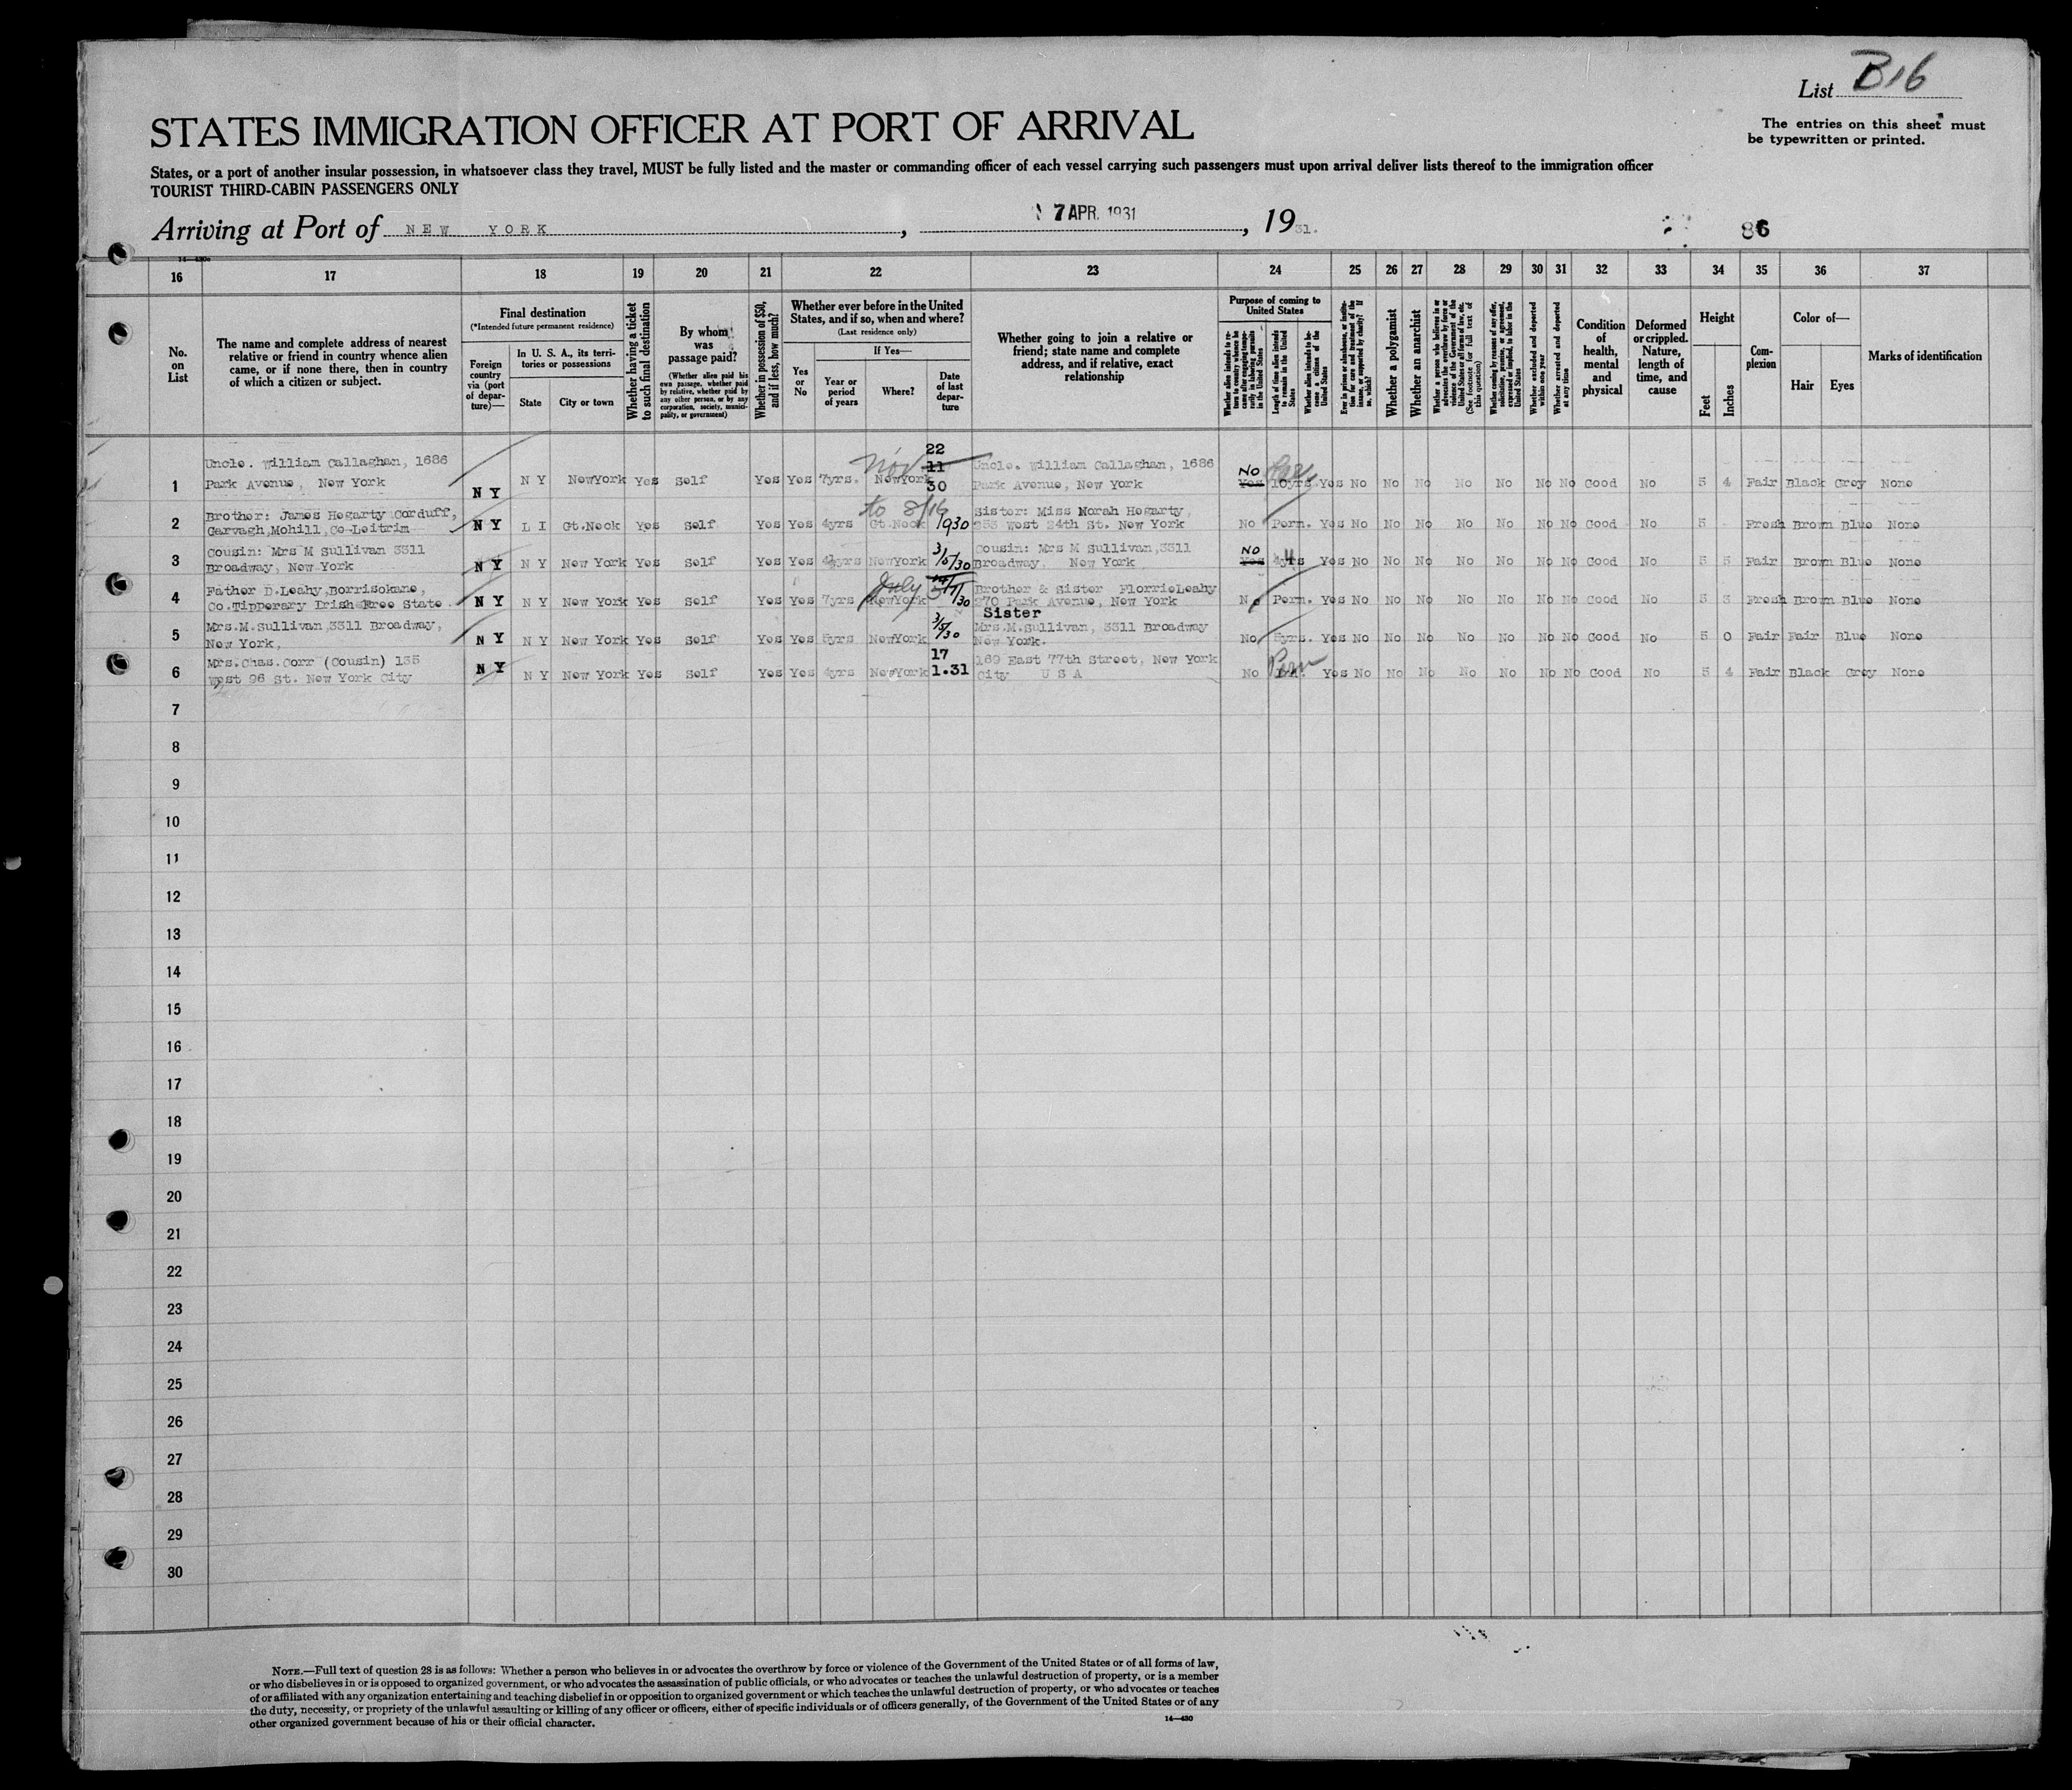 List B16
The entries on this sheet must
be typewritten or printed.
STATES IMMIGRATION OFFICER AT PORT OF ARRIVAL
States, or a port of another insular possession, in whatsoever class they travel, MUST be fully listed and the master or commanding officer of each vessel carrying such passengers must upon arrival deliver lists thereof to the immigration officer
TOURIST THIRD-CABIN PASSENGERS ONLY
Arriving at Port of NEW YORK, 7 APR. 1931, 1931.
86
16 17 18 19 20 21 22 23 24 25 26 27 28 29 30 31 32 33 34 35 36 37
No. on List
The name and complete address of nearest relative or friend in country whence alien came, or if none there, then in country of which a citizen or subject.
Final destination
(*Intended future permanent residence)
Foreign country via (port of departure)—
In U. S. A., its territories or possessions
State
City or town
Whether having a ticket to such final destination
By whom was passage paid?
(Whether alien paid his own passage, whether paid by relative, whether paid by any other person, or by any corporation, society, municipality, or government)
Whether in possession of $50, and if less, how much?
Whether ever before in the United States, and if so, when and where?
(Last residence only)
Yes or No
If Yes—
Year or period of years
Where?
Date of last departure
Whether going to join a relative or friend; state name and complete address, and if relative, exact relationship
Purpose of coming to United States
Whether alien intends to return to country whence he came after engaging temporarily in laboring pursuits in the United States
Length of time alien intends to remain in the United States
Whether alien intends to become a citizen of the United States
Ever in prison or almshouse, or institution for care and treatment of the insane, or supported by charity? If so, which?
Whether a polygamist
Whether an anarchist
Whether a person who believes in or advocates the overthrow by force or violence of the Government of the United States or all forms of law, etc. (See footnote for full text of this question)
Whether coming by reason of any offer, solicitation, promise, or agreement, expressed or implied, to labor in the United States
Whether excluded and deported within one year
Whether arrested and deported at any time
Condition of health, mental and physical
Deformed or crippled. Nature, length of time, and cause
Height
Feet
Inches
Complexion
Color of—
Hair
Eyes
Marks of identification
Uncle. William Callaghan, 1686 Nov 22 11 Uncle. William Callaghan, 1686 No
1 Park Avenue, New York N Y N Y NewYork Yes Self Yes Yes 7yrs. NewYork 30 Park Avenue, New York Yes 10yrs. Yes No No No No No No No Good No 5 4 Fair Black Grey None
Brother: James Hegarty Corduff, to 8/16 Sister: Miss Norah Hegarty,
2 Garvagh, Mohill, Co-Leitrim N Y L I Gt.Neck Yes Self Yes Yes 4yrs Gt.Neck 1930 253 West 24th St. New York No Perm. Yes No No No No No No No Good No 5 Fresh Brown Blue None
Cousin: Mrs M Sullivan 3311 Cousin: Mrs M Sullivan, 3311 No
3 Broadway, New York N Y N Y New York Yes Self Yes Yes 4½yrs NewYork 3/5/30 Broadway. New York Yes 4yrs Yes No No No No No No No Good No 5 5 Fair Brown Blue None
Father D.Leahy, Borrisokane, July Brother & Sister FlorrieLeahy
4 Co.Tipperary Irish Free State. N Y N Y New York Yes Self Yes Yes 7yrs NewYork 30 270 Park Avenue, New York No Perm. Yes No No No No No No No Good No 5 3 Fresh Brown Blue None
Sister
Mrs.M.Sullivan, 3311 Broadway, Mrs.M.Sullivan, 3311 Broadway
5 New York, N Y N Y New York Yes Self Yes Yes 5yrs NewYork 3/5/30 New York. No 5yrs. Yes No No No No No No No Good No 5 0 Fair Fair Blue None
Mrs.Chas.Corr (Cousin) 135 17 169 East 77th Street, New York Perm
6 West 96 St. New York City N Y N Y New York Yes Self Yes Yes 4yrs NewYork 1.31 City U S A No Yes No No No No No No No Good No 5 4 Fair Black Grey None
7
8
9
10
11
12
13
14
15
16
17
18
19
20
21
22
23
24
25
26
27
28
29
30
NOTE.—Full text of question 28 is as follows: Whether a person who believes in or advocates the overthrow by force or violence of the Government of the United States or of all forms of law,
or who disbelieves in or is opposed to organized government, or who advocates the assassination of public officials, or who advocates or teaches the unlawful destruction of property, or is a member
of or affiliated with any organization entertaining and teaching disbelief in or opposition to organized government or which teaches the unlawful destruction of property, or who advocates or teaches
the duty, necessity, or propriety of the unlawful assaulting or killing of any officer or officers, either of specific individuals or of officers generally, of the Government of the United States or of any
other organized government because of his or their official character.
14—430